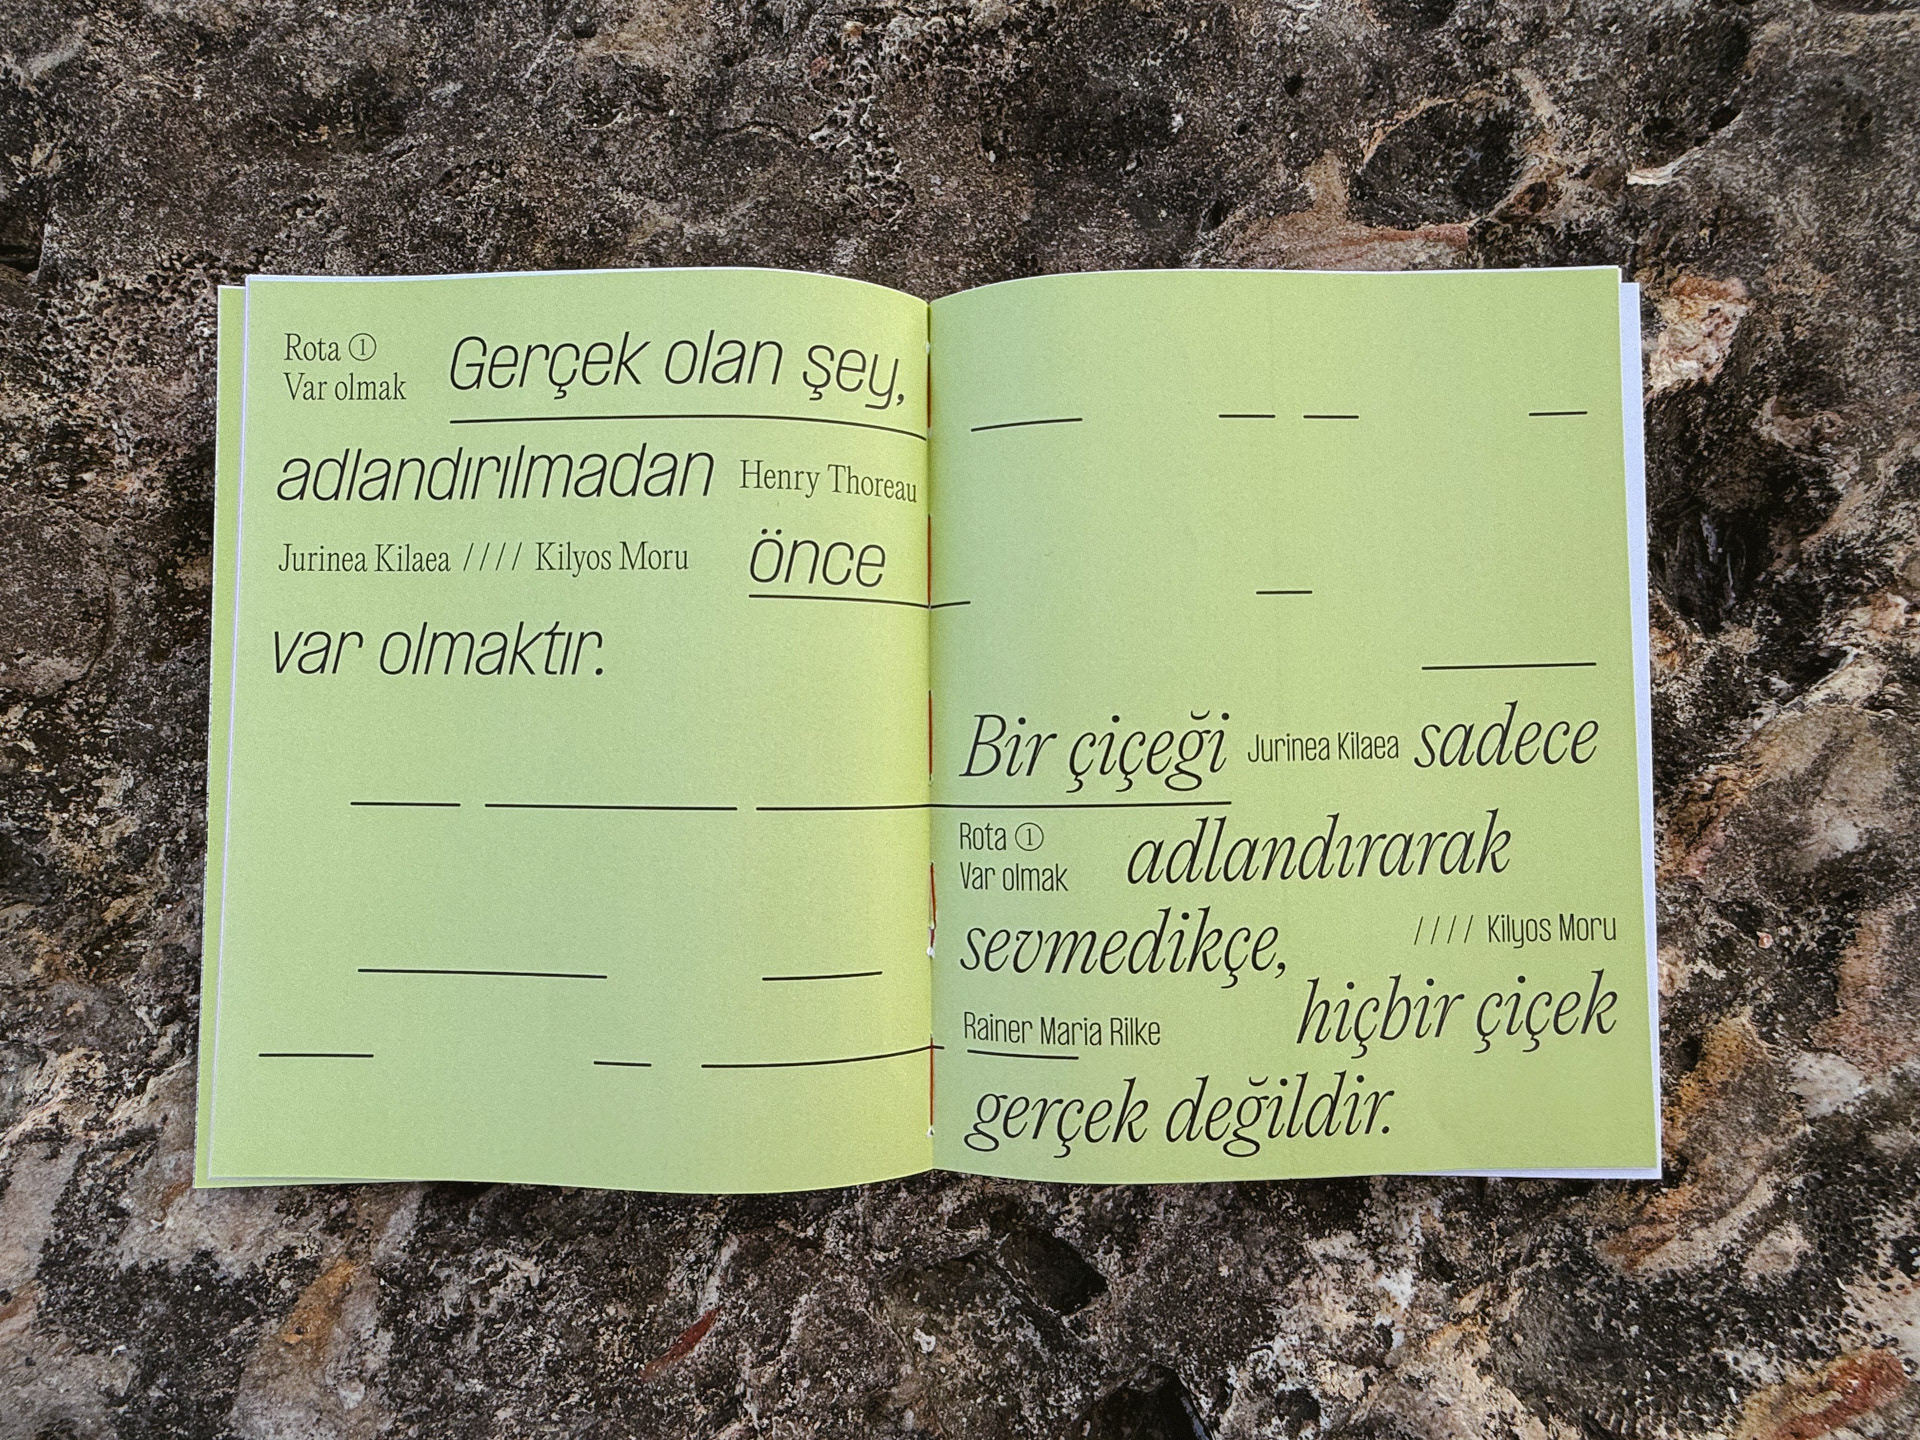 Rota ① Gerçek olan şey,
Var olmak
adlandırılmadan Henry Thoreau
Jurinea Kilaea //// Kilyos Moru önce
var olmaktır.
Bir çiçeği Jurinea Kilaea sadece
Rota ① adlandırarak
Var olmak
sevmedikçe, //// Kilyos Moru
Rainer Maria Rilke hiçbir çiçek
gerçek değildir.